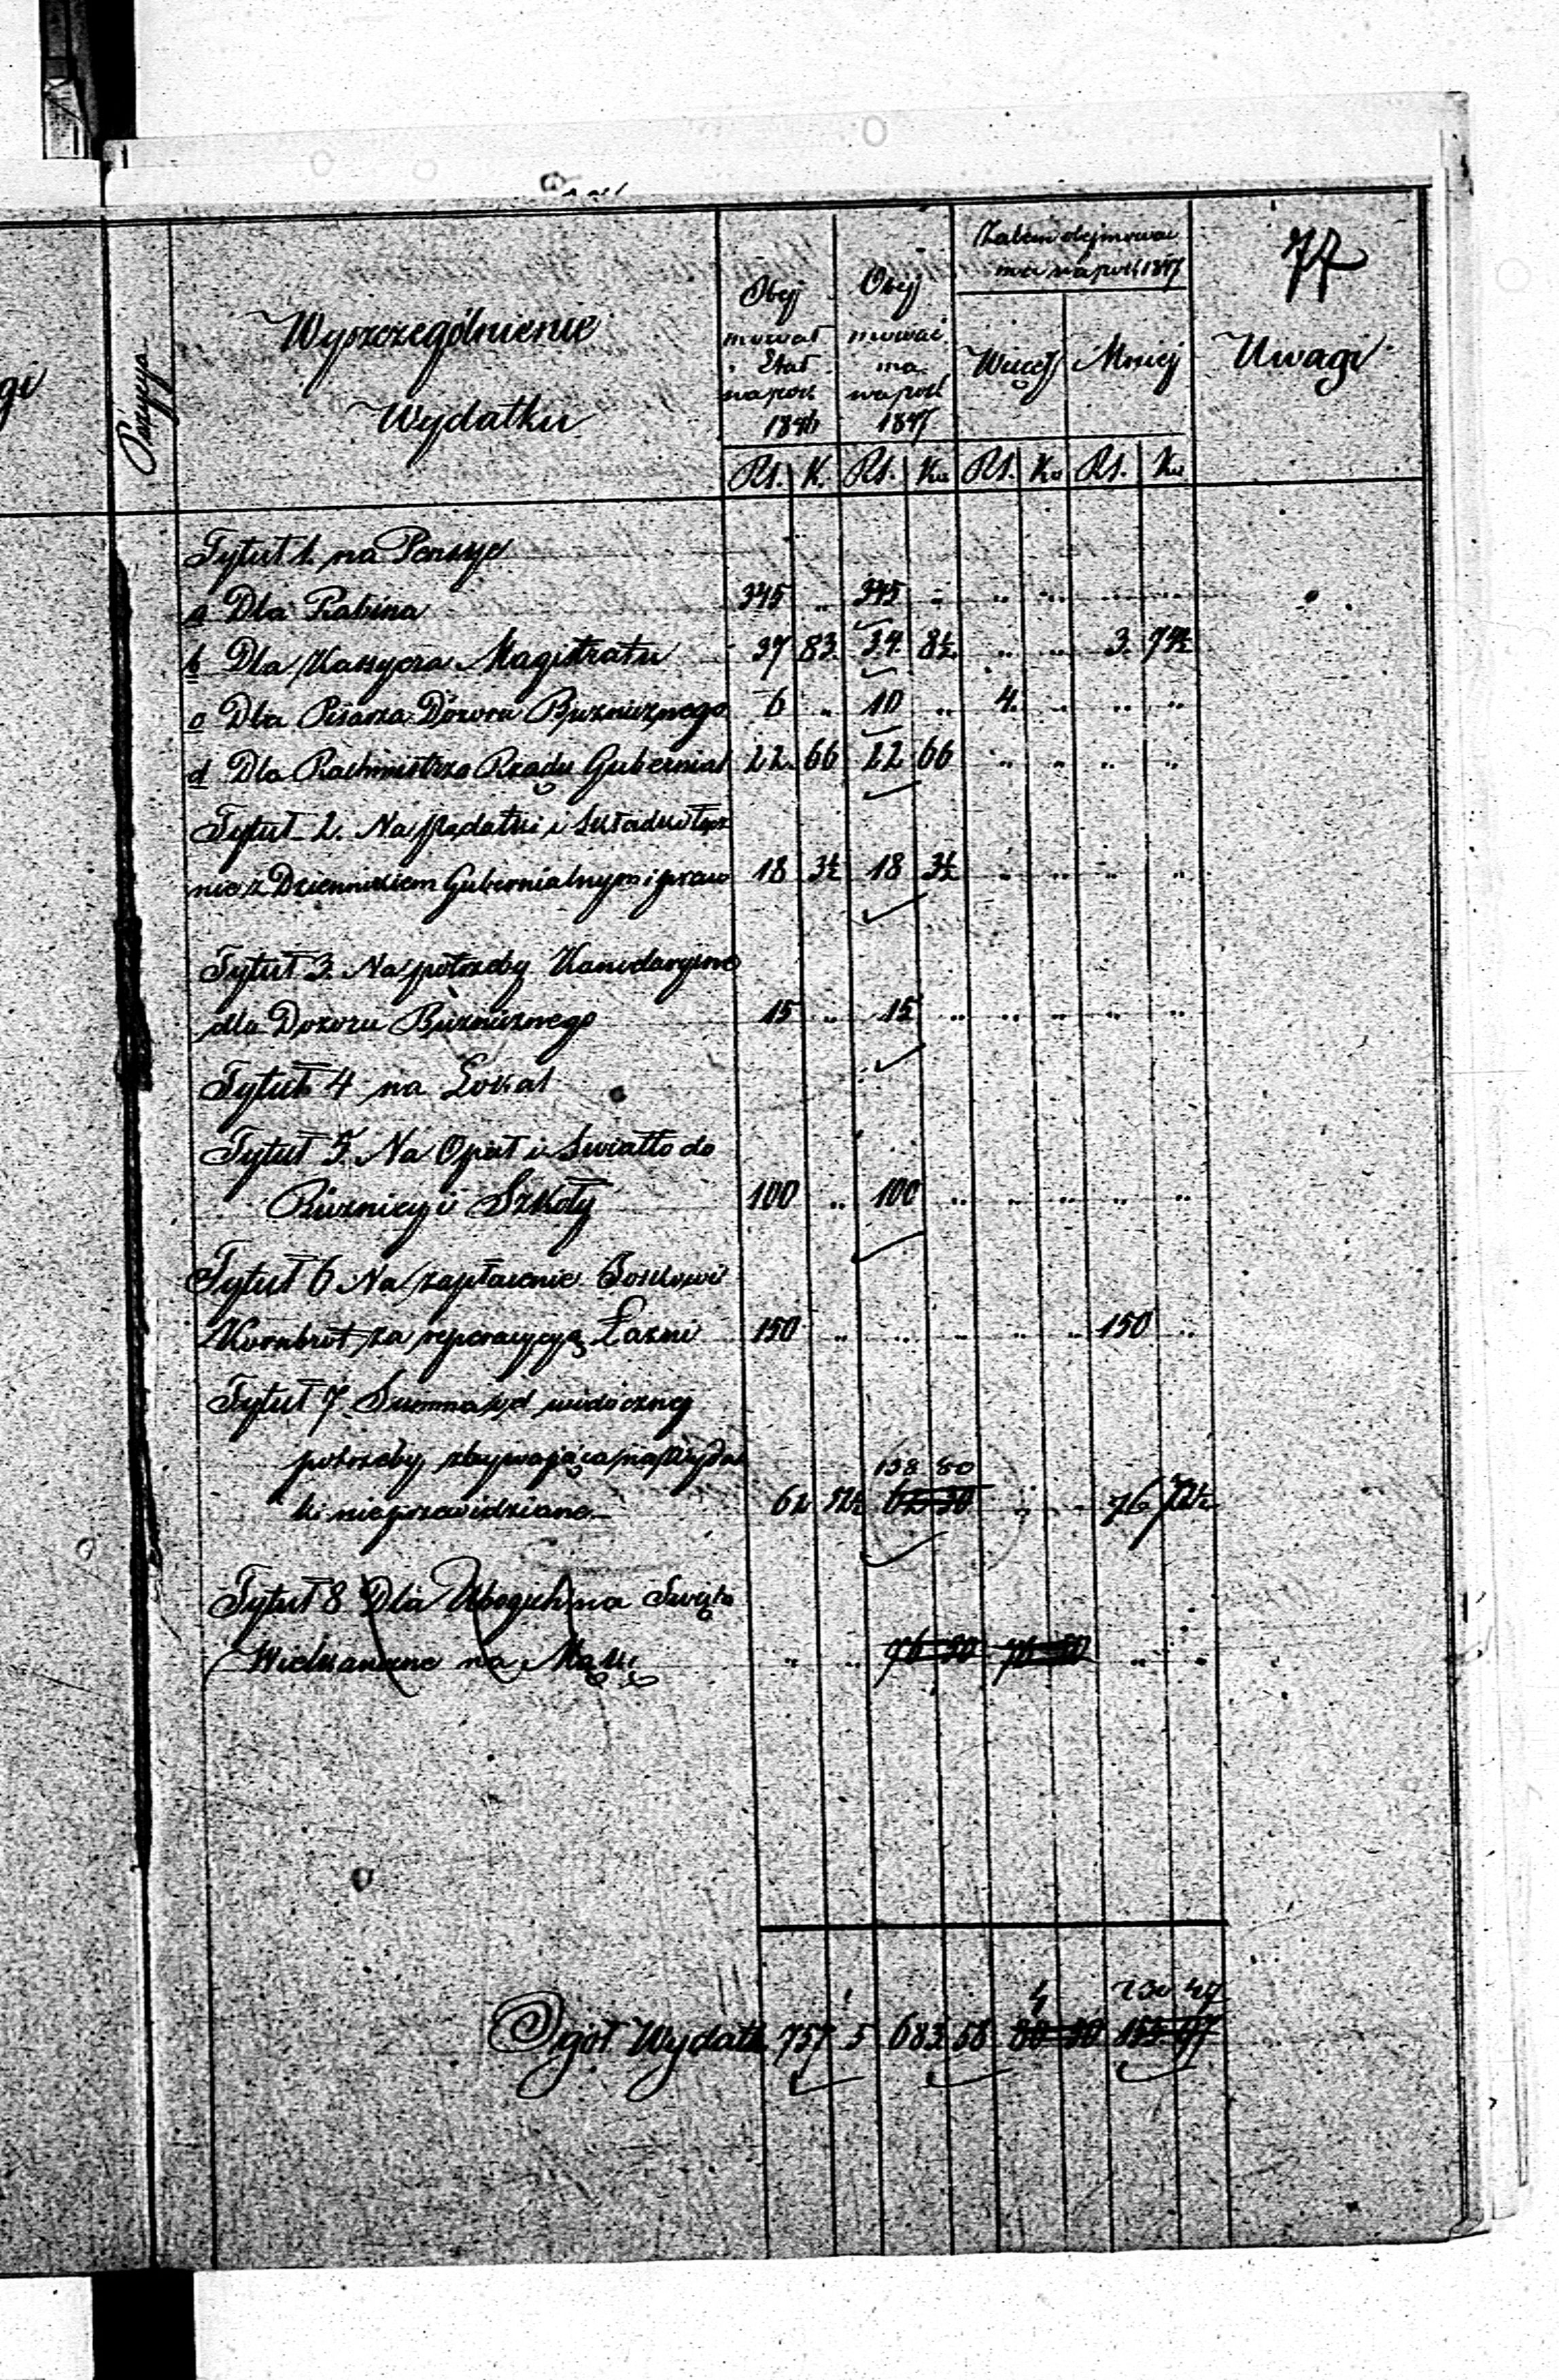 77
Pozycya
Wyszczególnienie
Wydatku
Obej
mował
Etat
na rok
1846
Obej
mować
ma
na rok
1847
Zatem obejmować
ma na rok 1847
Więcej
Mniej
Uwagi
Rs. K. Rs. Ko Rs. Ko Rs. Ko
Tytuł 1. na Pensye
a Dla Rabina 345 .. 345 .. .. .. .. ..
b Dla Kassyera Magistratu 37 83. 34. 8½ .. .. 3. 74½
c Dla Pisarza Dozoru Bużnicznego 6 .. 10 .. 4. .. .. ..
d Dla Rachmistrza Rządu Gubernial 22. 66 22 66 .. .. .. ..
Tytuł 2. Na Podatki i Składki łącz
nie z Dziennikiem Gubernialnym i praw 18 3½ 18 3½ .. .. .. ..
Tytuł 3. Na potrzeby Kancelaryjne
dla Dozoru Bużnicznego 15 .. 15 .. .. .. .. ..
Tytuł 4 na Lokal
Tytuł 5. Na Opał i Swiatło do
Bużnicy i Szkoły 100 .. 100 .. .. .. .. ..
Tytuł 6 Na zapłacenie
Kornbrot za reperacyą Łazni 150 .. .. .. .. .. 150 ..
Tytuł 7. Summa od widoczney
potrzeby zbywająca na Wydat 138 80
ki nieprzewidziane 62 52½ 62 30 .. .. 76 72½
Tytuł 8 Dla Ubogich na Swięta
Wielkanocne na Mace .. .. 76 50 76 50 .. ..
4 230 47
Ogół Wydatk 757 5 683 58 80 50 153 97